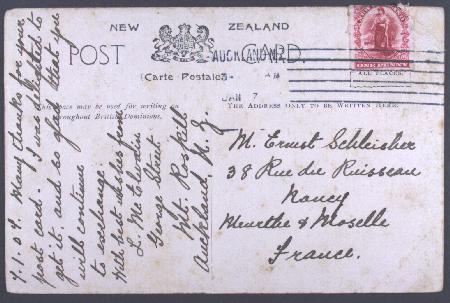 NEW ZEALAND
POST CARD.
(Carte Postale)
AUCKLAND N.Z.
JAN 7
ONE PENNY
ALL PLACES.
This space may be used for writing on
throughout British Dominions.
THE ADDRESS ONLY TO BE WRITTEN HERE.
7.1.09. Many thanks for your
post card. I was delighted to
get it. and so glad that you
will continue
to exchange
With best wishes from
L. McElwain
George Street
Mt. Roskill
Auckland, N.Z.
M. Ernest Schleisher
38 Rue du Ruisseau
Nancy
Meurthe & Moselle
France.